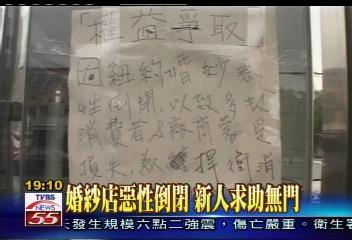 「權益爭取」
因紐約婚紗惡
性倒閉，以致多數
消費者&廠商蒙受
損失，敬 捍衛消
19:10
TVBS
NEWS
55
婚紗店惡性倒閉 新人求助無門
發生規模六點二強震，傷亡嚴重。衛生